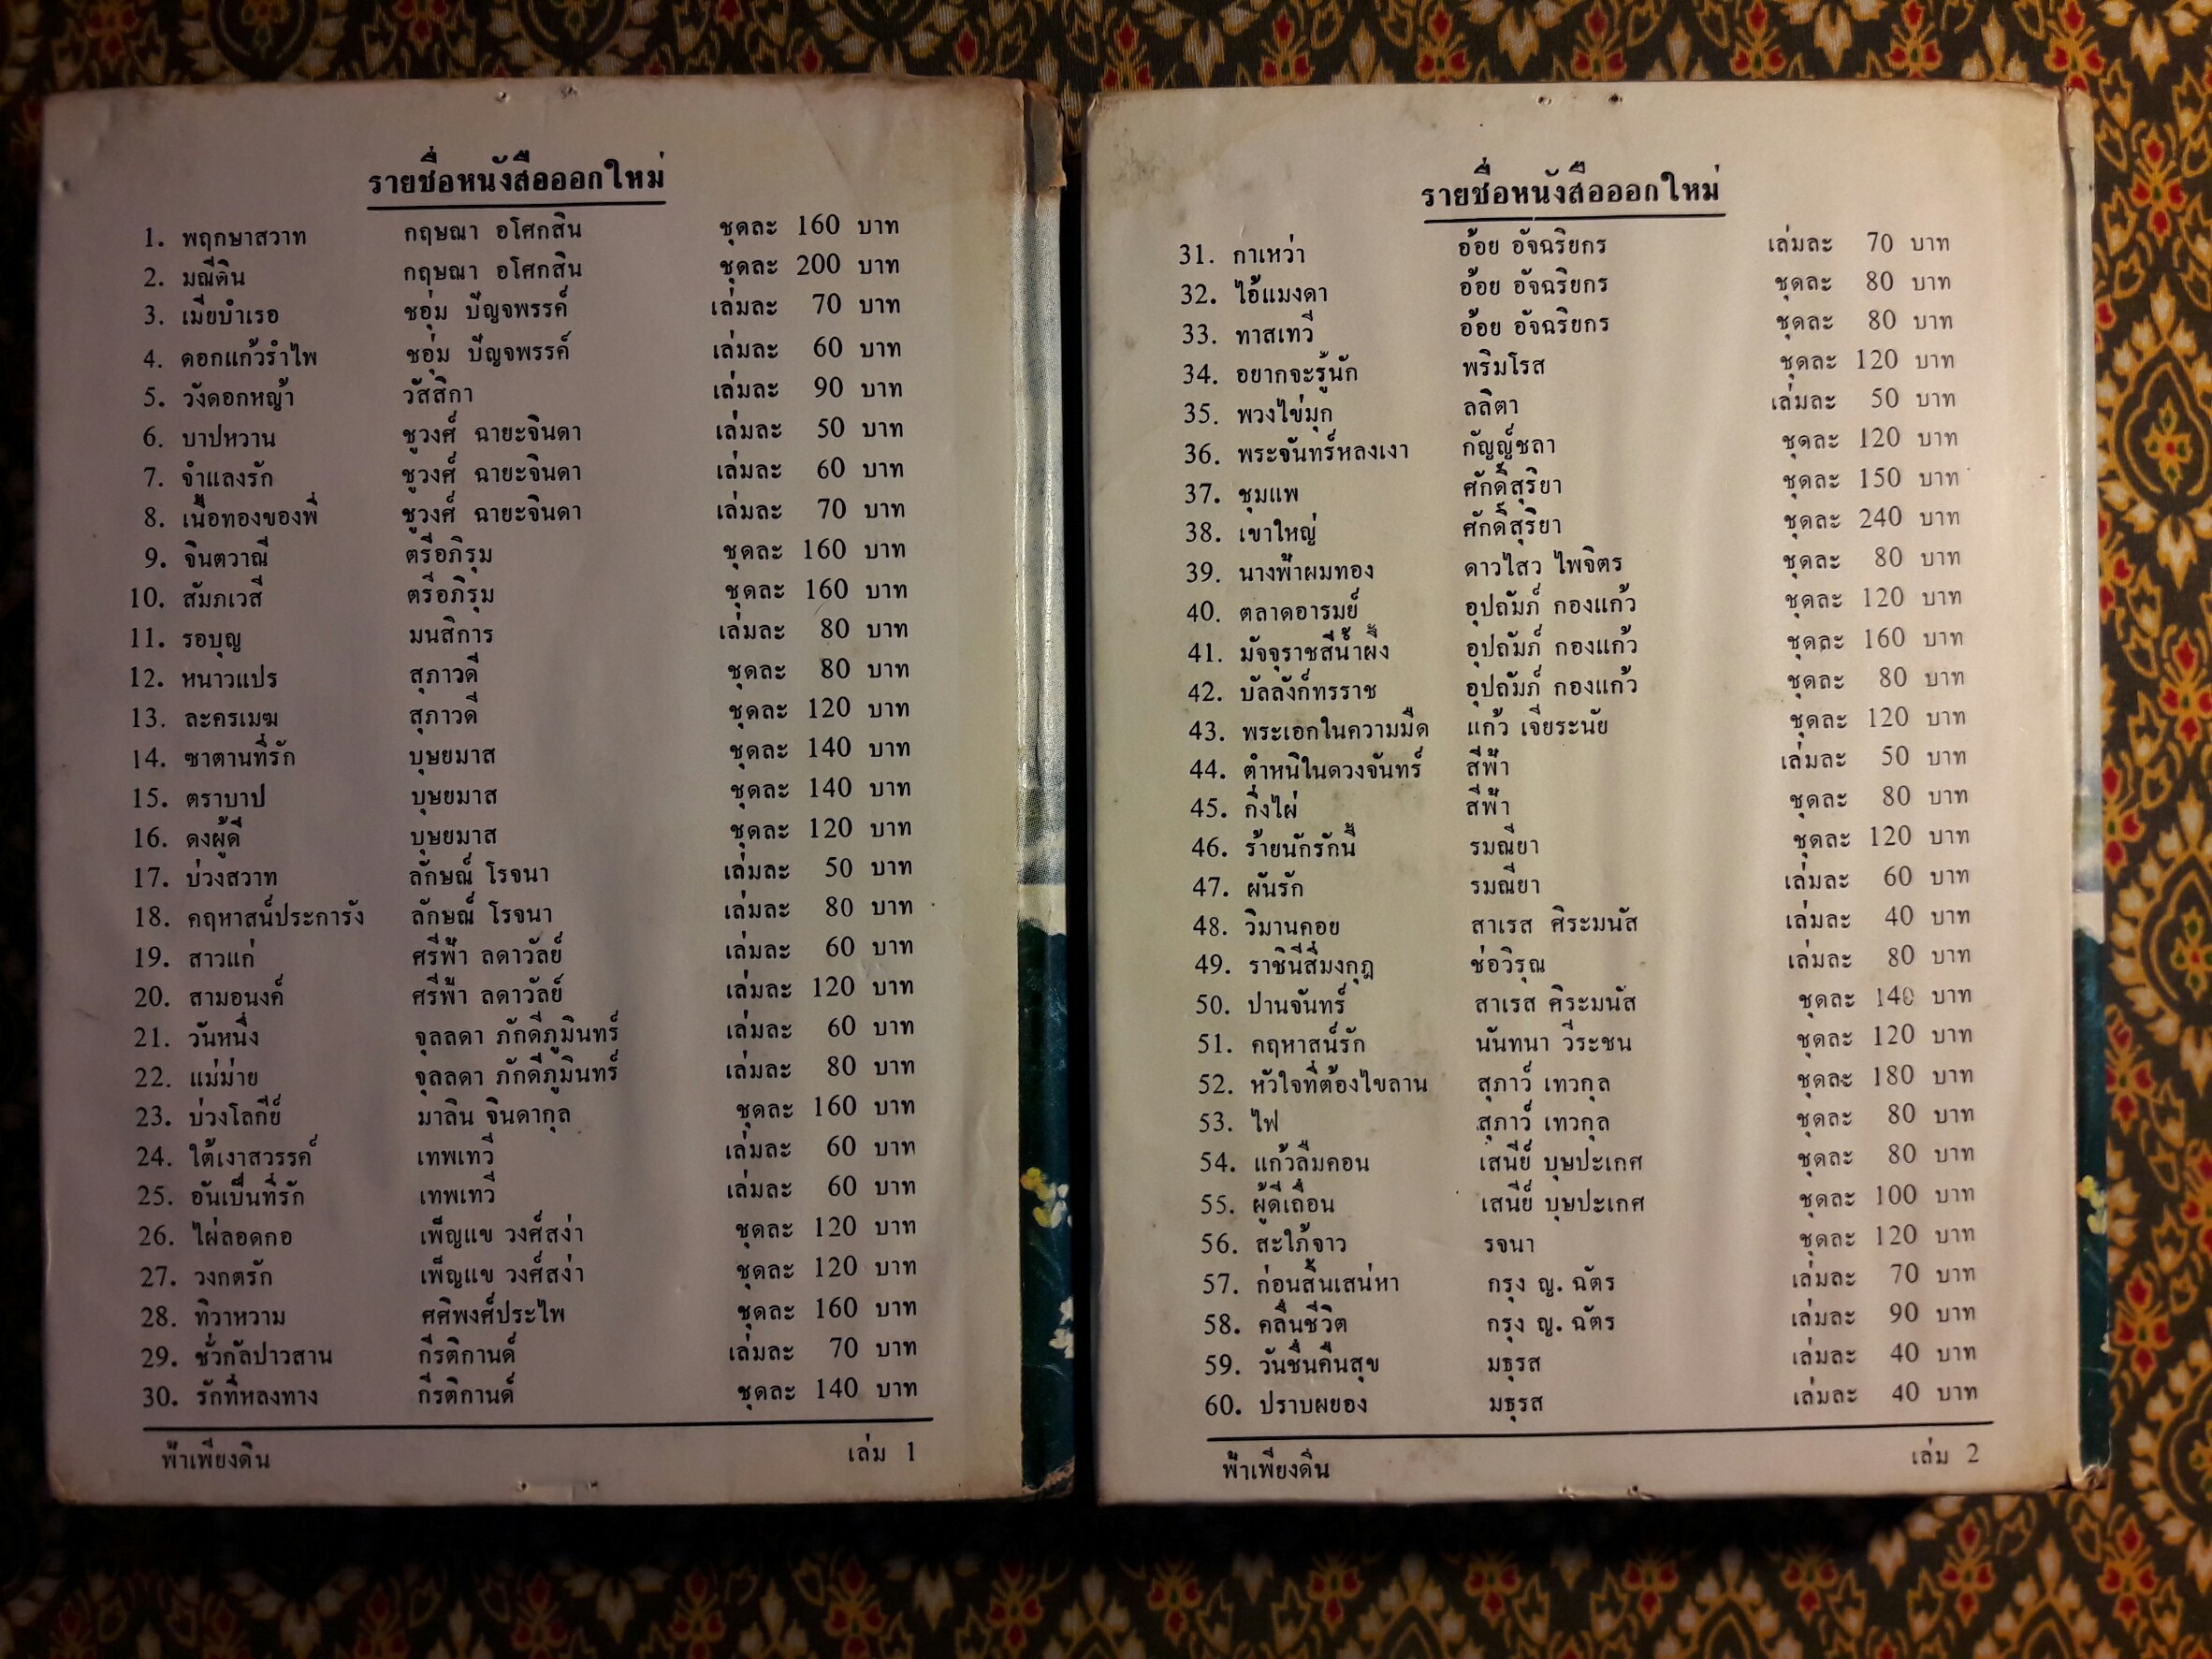 รายชื่อหนังสือออกใหม่
1. พฤกษาสวาท กฤษณา อโศกสิน ชุดละ 160 บาท
2. มณีดิน กฤษณา อโศกสิน ชุดละ 200 บาท
3. เมียบำเรอ ชอุ่ม ปัญจพรรค์ เล่มละ 70 บาท
4. ดอกแก้วรำไพ ชอุ่ม ปัญจพรรค์ เล่มละ 60 บาท
5. วังดอกหญ้า วัสสิกา เล่มละ 90 บาท
6. บาปหวาน ชูวงศ์ ฉายะจินดา เล่มละ 50 บาท
7. จำแลงรัก ชูวงศ์ ฉายะจินดา เล่มละ 60 บาท
8. เนื้อทองของพี่ ชูวงศ์ ฉายะจินดา เล่มละ 70 บาท
9. จินตวาณี ตรีอภิรุม ชุดละ 160 บาท
10. สัมภเวสี ตรีอภิรุม ชุดละ 160 บาท
11. รอบุญ มนสิการ เล่มละ 80 บาท
12. หนาวแปร สุภาวดี ชุดละ 80 บาท
13. ละครเมฆ สุภาวดี ชุดละ 120 บาท
14. ซาตานที่รัก บุษยมาส ชุดละ 140 บาท
15. ตราบาป บุษยมาส ชุดละ 140 บาท
16. ดงผู้ดี บุษยมาส ชุดละ 120 บาท
17. บ่วงสวาท ลักษณ์ โรจนา เล่มละ 50 บาท
18. คฤหาสน์ประการัง ลักษณ์ โรจนา เล่มละ 80 บาท
19. สาวแก่ ศรีฟ้า ลดาวัลย์ เล่มละ 60 บาท
20. สามอนงค์ ศรีฟ้า ลดาวัลย์ เล่มละ 120 บาท
21. วันหนึ่ง จุลลดา ภักดีภูมินทร์ เล่มละ 60 บาท
22. แม่ม่าย จุลลดา ภักดีภูมินทร์ เล่มละ 80 บาท
23. บ่วงโลกีย์ มาลิน จินดากุล ชุดละ 160 บาท
24. ใต้เงาสวรรค์ เทพเทวี เล่มละ 60 บาท
25. อันเป็นที่รัก เทพเทวี เล่มละ 60 บาท
26. ไผ่ลอดกอ เพ็ญแข วงศ์สง่า ชุดละ 120 บาท
27. วงกตรัก เพ็ญแข วงศ์สง่า ชุดละ 120 บาท
28. ทิวาหวาม ศศิพงศ์ประไพ ชุดละ 160 บาท
29. ชั่วกัลปาวสาน กีรติกานด์ เล่มละ 70 บาท
30. รักที่หลงทาง กีรติกานด์ ชุดละ 140 บาท
ฟ้าเพียงดิน เล่ม 1
รายชื่อหนังสือออกใหม่
31. กาเหว่า อ้อย อัจฉริยกร เล่มละ 70 บาท
32. ไอ้แมงดา อ้อย อัจฉริยกร ชุดละ 80 บาท
33. ทาสเทวี อ้อย อัจฉริยกร ชุดละ 80 บาท
34. อยากจะรู้นัก พริมโรส ชุดละ 120 บาท
35. พวงไข่มุก ลลิตา เล่มละ 50 บาท
36. พระจันทร์หลงเงา กัญญ์ชลา ชุดละ 120 บาท
37. ชุมแพ ศักดิ์สุริยา ชุดละ 150 บาท
38. เขาใหญ่ ศักดิ์สุริยา ชุดละ 240 บาท
39. นางฟ้าผมทอง ดาวไสว ไพจิตร ชุดละ 80 บาท
40. ตลาดอารมย์ อุปถัมภ์ กองแก้ว ชุดละ 120 บาท
41. มัจจุราชสีน้ำผึ้ง อุปถัมภ์ กองแก้ว ชุดละ 160 บาท
42. บัลลังก์ทรราช อุปถัมภ์ กองแก้ว ชุดละ 80 บาท
43. พระเอกในความมืด แก้ว เจียระนัย ชุดละ 120 บาท
44. ตำหนิในดวงจันทร์ สีฟ้า เล่มละ 50 บาท
45. กิ่งไผ่ สีฟ้า ชุดละ 80 บาท
46. ร้ายนักรักนี้ รมณียา ชุดละ 120 บาท
47. ผันรัก รมณียา เล่มละ 60 บาท
48. วิมานคอย สาเรส ศิระมนัส เล่มละ 40 บาท
49. ราชินีสี่มงกุฎ ช่อวิรุณ เล่มละ 80 บาท
50. ปานจันทร์ สาเรส ศิระมนัส ชุดละ 140 บาท
51. คฤหาสน์รัก นันทนา วีระชน ชุดละ 120 บาท
52. หัวใจที่ต้องไขลาน สุภาว์ เทวกุล ชุดละ 180 บาท
53. ไฟ สุภาว์ เทวกุล ชุดละ 80 บาท
54. แก้วลืมคอน เสนีย์ บุษปะเกศ ชุดละ 80 บาท
55. ผู้ดีเถื่อน เสนีย์ บุษปะเกศ ชุดละ 100 บาท
56. สะใภ้จาว รจนา ชุดละ 120 บาท
57. ก่อนสิ้นเสน่หา กรุง ญ. ฉัตร เล่มละ 70 บาท
58. คลื่นชีวิต กรุง ญ. ฉัตร เล่มละ 90 บาท
59. วันชื่นคืนสุข มธุรส เล่มละ 40 บาท
60. ปราบผยอง มธุรส เล่มละ 40 บาท
ฟ้าเพียงดิน เล่ม 2